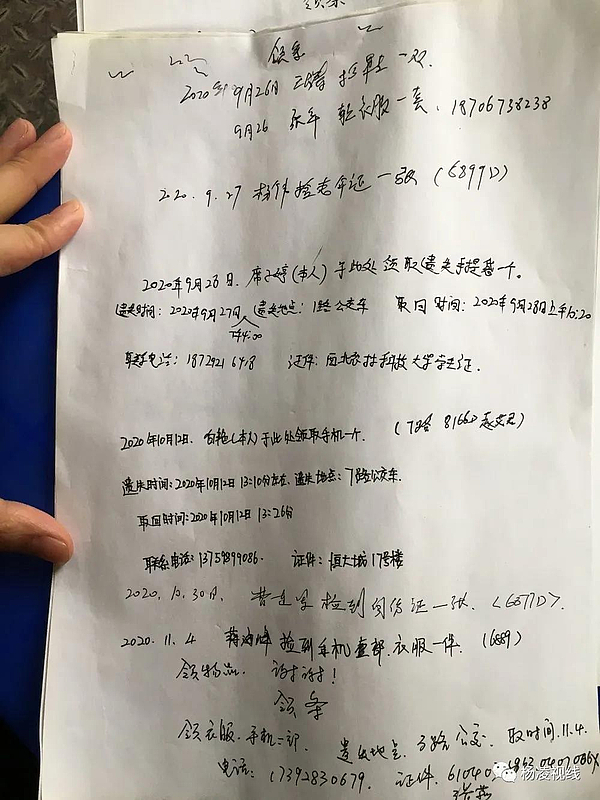 领条
2020年9月26日 手 一双.
9月26 张军 衣服一套. 18706738238
2020.9.27 捡老年证一张 (6899D)
2020年9月28日. 席婷(本人)于此处领取遗失手提幕一个。
遗失时间:2020年9月27日, 遗失地点:1路公交车 取回时间:2020年9月28日上午10:20
下午4:00
联系电话:1872921 6478 证件:西北农林科技大学学生证.
2020年10月12日. 白艳(本人)于此处领取手机一个. (7路 8166D)
遗失时间:2020年10月12日 13:10分左右. 遗失地点:7路公交车.
取回时间:2020年10月12日 13:26分
联系电话:13759899086. 证件:恒大城17号楼
2020.10.30日. 曹 捡到身份证一张. (6577D).
2020.11.4 捡到手机壹部.衣服一件. (6889)
领物品. 谢谢!
领条
领衣服.手机一部. 遗失地点 3路公交. 取时间.11.4.
电话:17392830679. 证件.61040
杨凌视线